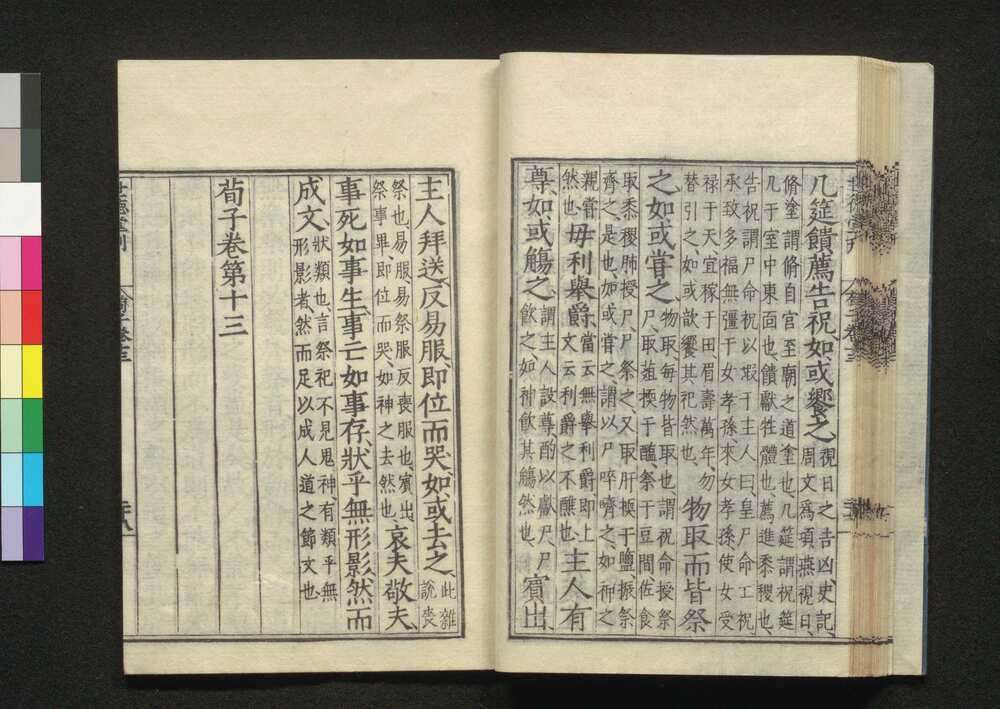 几筵饋薦告祝如或饗之視日之吉凶史記
周文爲項燕視日
脩塗謂脩自宮至廟之道塗也几筵謂祝筵
几于室中東面也饋獻牲體也薦進黍稷也
告祝謂尸命祝以嘏于主人曰皇尸命工祝
承致多福無疆于女孝孫來女孝孫使女受
祿于天宜稼于田眉壽萬年勿
替引之如或歆饗其祀然也物取而皆祭
之如或嘗之物取每物皆取也謂祝命授祭
尸取菹㨎于醢祭于豆間佐食
取黍稷肺授尸尸祭之又取肝㨎于鹽振祭
齊之是也如或嘗之謂以尸啐齊之如神之
親嘗
然也毋利舉爵當云無舉利爵即上
文云利爵之不醮也主人有
尊如或觴之謂主人設尊酌以獻尸尸
飲之如神飲其觴然也賓出
主人拜送反易服即位而哭如或去之此雜
說喪
祭也易服易祭服反喪服也賓出
祭事畢即位而哭如神之去然也哀夫敬夫
事死如事生事亡如事存狀乎無形影然而
成文狀類也言祭祀不見鬼神有類乎無
形影者然而足以成人道之節文也
荀子卷第十三